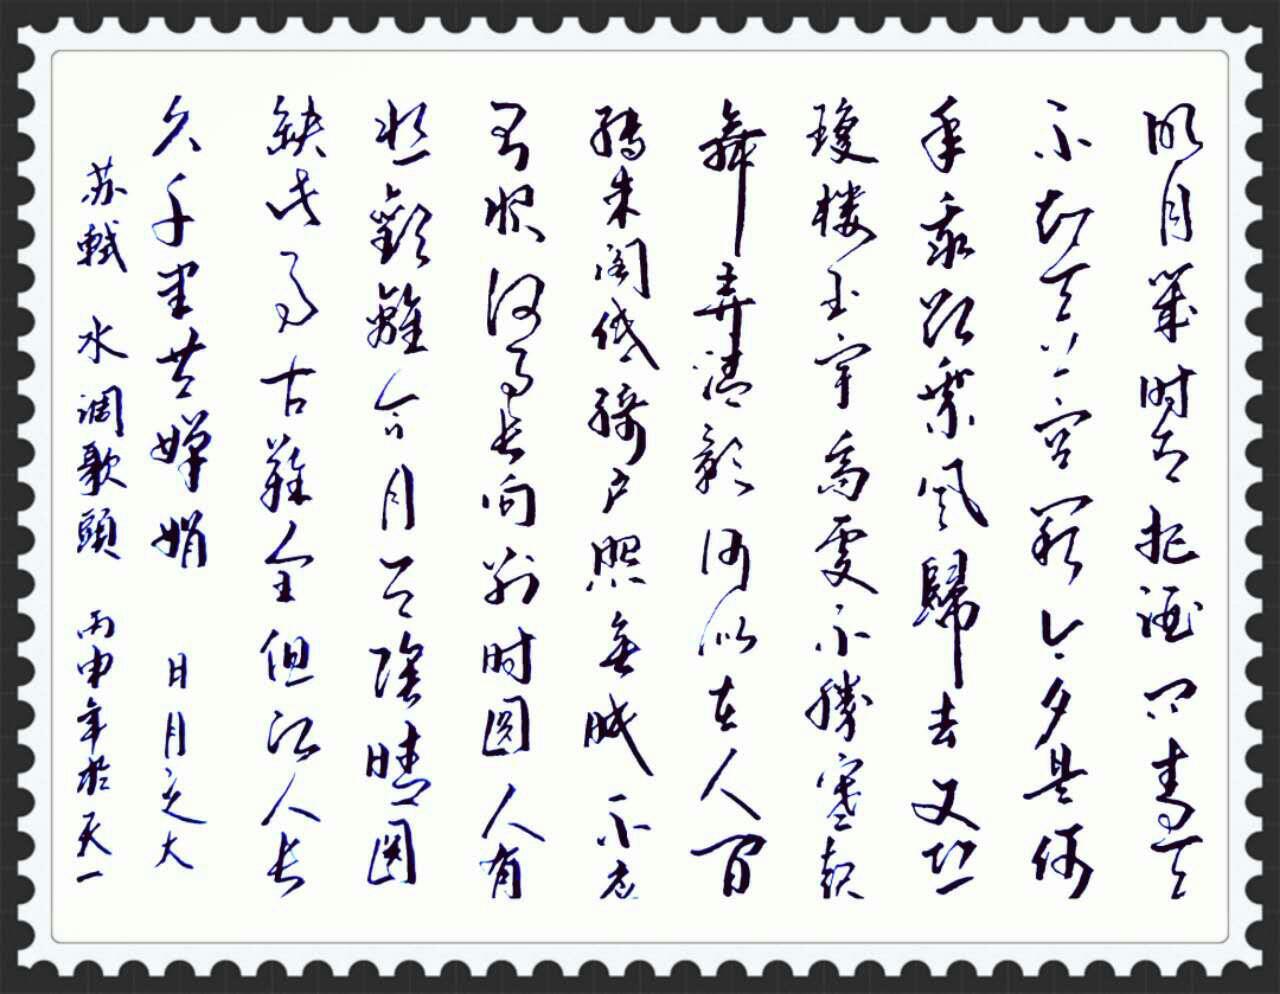 明月幾时有把酒问青天
不知天上宫阙今夕是何
年我欲乘风歸去又恐
瓊楼玉宇高處不勝寒起
舞弄清影何似在人间
轉朱阁低綺户照無眠不应
有恨何事长向别时圆人有
悲歡離合月有陰晴圆
缺此事古難全但愿人长
久千里共婵娟 日月之大
苏軾 水调歌頭 丙申年於天一